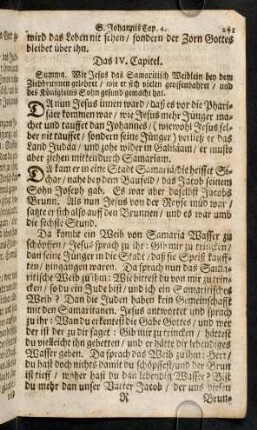 S. Johannis Cap. 4.
wird das Leben nit sehen / sondern der Zorn Gottes
bleibet über ihn.
Das IV. Capitel.
Summa. Wie Jesus das Samaritisch Weiblein bey dem
Ziehbrunnen gelehret / wie er sich vielen geoffenbahret / und
des Königleins Sohn gesund gemacht hat.
DA nun Jesus innen ward / daß es vor die Phari-
säer kommen war / wie Jesus mehr Jünger ma-
chet und tauffet dan Johannes / (wiewohl Jesus sel-
ber nit tauffet / sondern seine Jünger) verließ er das
Land Judäa / und zohe wider in Galiläam / er muste
aber ziehen mitten durch Samariam.
DA kam er in eine Stadt Samariä die heisset Si-
char / nahe bey dem Baufeld / das Jacob seinem
Sohn Joseph gab. Es war aber daselbst Jacobs
Brunn. Als nun Jesus von der Reyse müd war /
satzte er sich also auff den Brunnen / und es war umb
die sechste Stund.
Da kombt ein Weib von Samaria Wasser zu
schöpffen / Jesus sprach zu ihr: Gib mir zu trincken /
dan seine Jünger in die Stadt / daß sie Speiß kauff-
ten / hingangen waren. Da sprach nun das Sama-
ritische Weib zu ihm: Wie bittest du von mir zu trin-
cken / so du ein Jude bist / und ich ein Samaritisches
Weib? Dan die Juden haben kein Gemeinschafft
mit den Samaritanen. Jesus antwortet und sprach
zu ihr: Wan du erkentest die Gabe Gottes / und wer
der ist der zu dir saget: Gib mir zu trincken / hättest
du vielleicht ihn gebetten / und er hätte dir lebendiges
Wasser geben. Da sprach das Weib zu ihm: Herr /
du hast doch nichts damit du schöpffest / und der Brun
ist tieff / woher hast du dan lebendig Wasser? Bist
du mehr dan unser Vatter Jacob / der uns diesen
R
Brun-